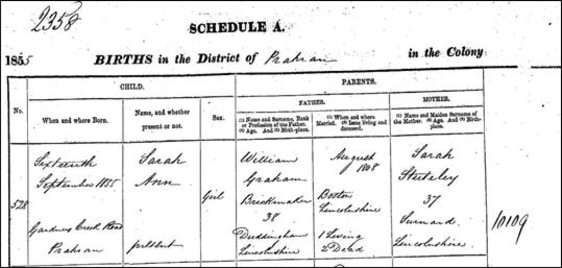 2358
SCHEDULE A.
1855 BIRTHS in the District of Prahran in the Colony
CHILD.
PARENTS.
No.
When and where Born.
Name, and whether present or not.
Sex.
FATHER.
MOTHER.
(1) Name and Surname, Rank
or Profession of the Father.
(2) Age. And (3) Birth-
place.
(1) When and where
Married. (2) Issue living and
deceased.
(1) Name and Maiden Surname of
the Mother. (2) Age. And (3)
Birthplace.
528
Sixteenth
September 1855
Gardners Creek Road
Prahran
Sarah
Ann
present
Girl
William
Graham
Brickmaker
38
Lincolnshire
August
Boston
Lincolnshire
1 Living
2 Dead
Sarah
37
Lincolnshire
10109